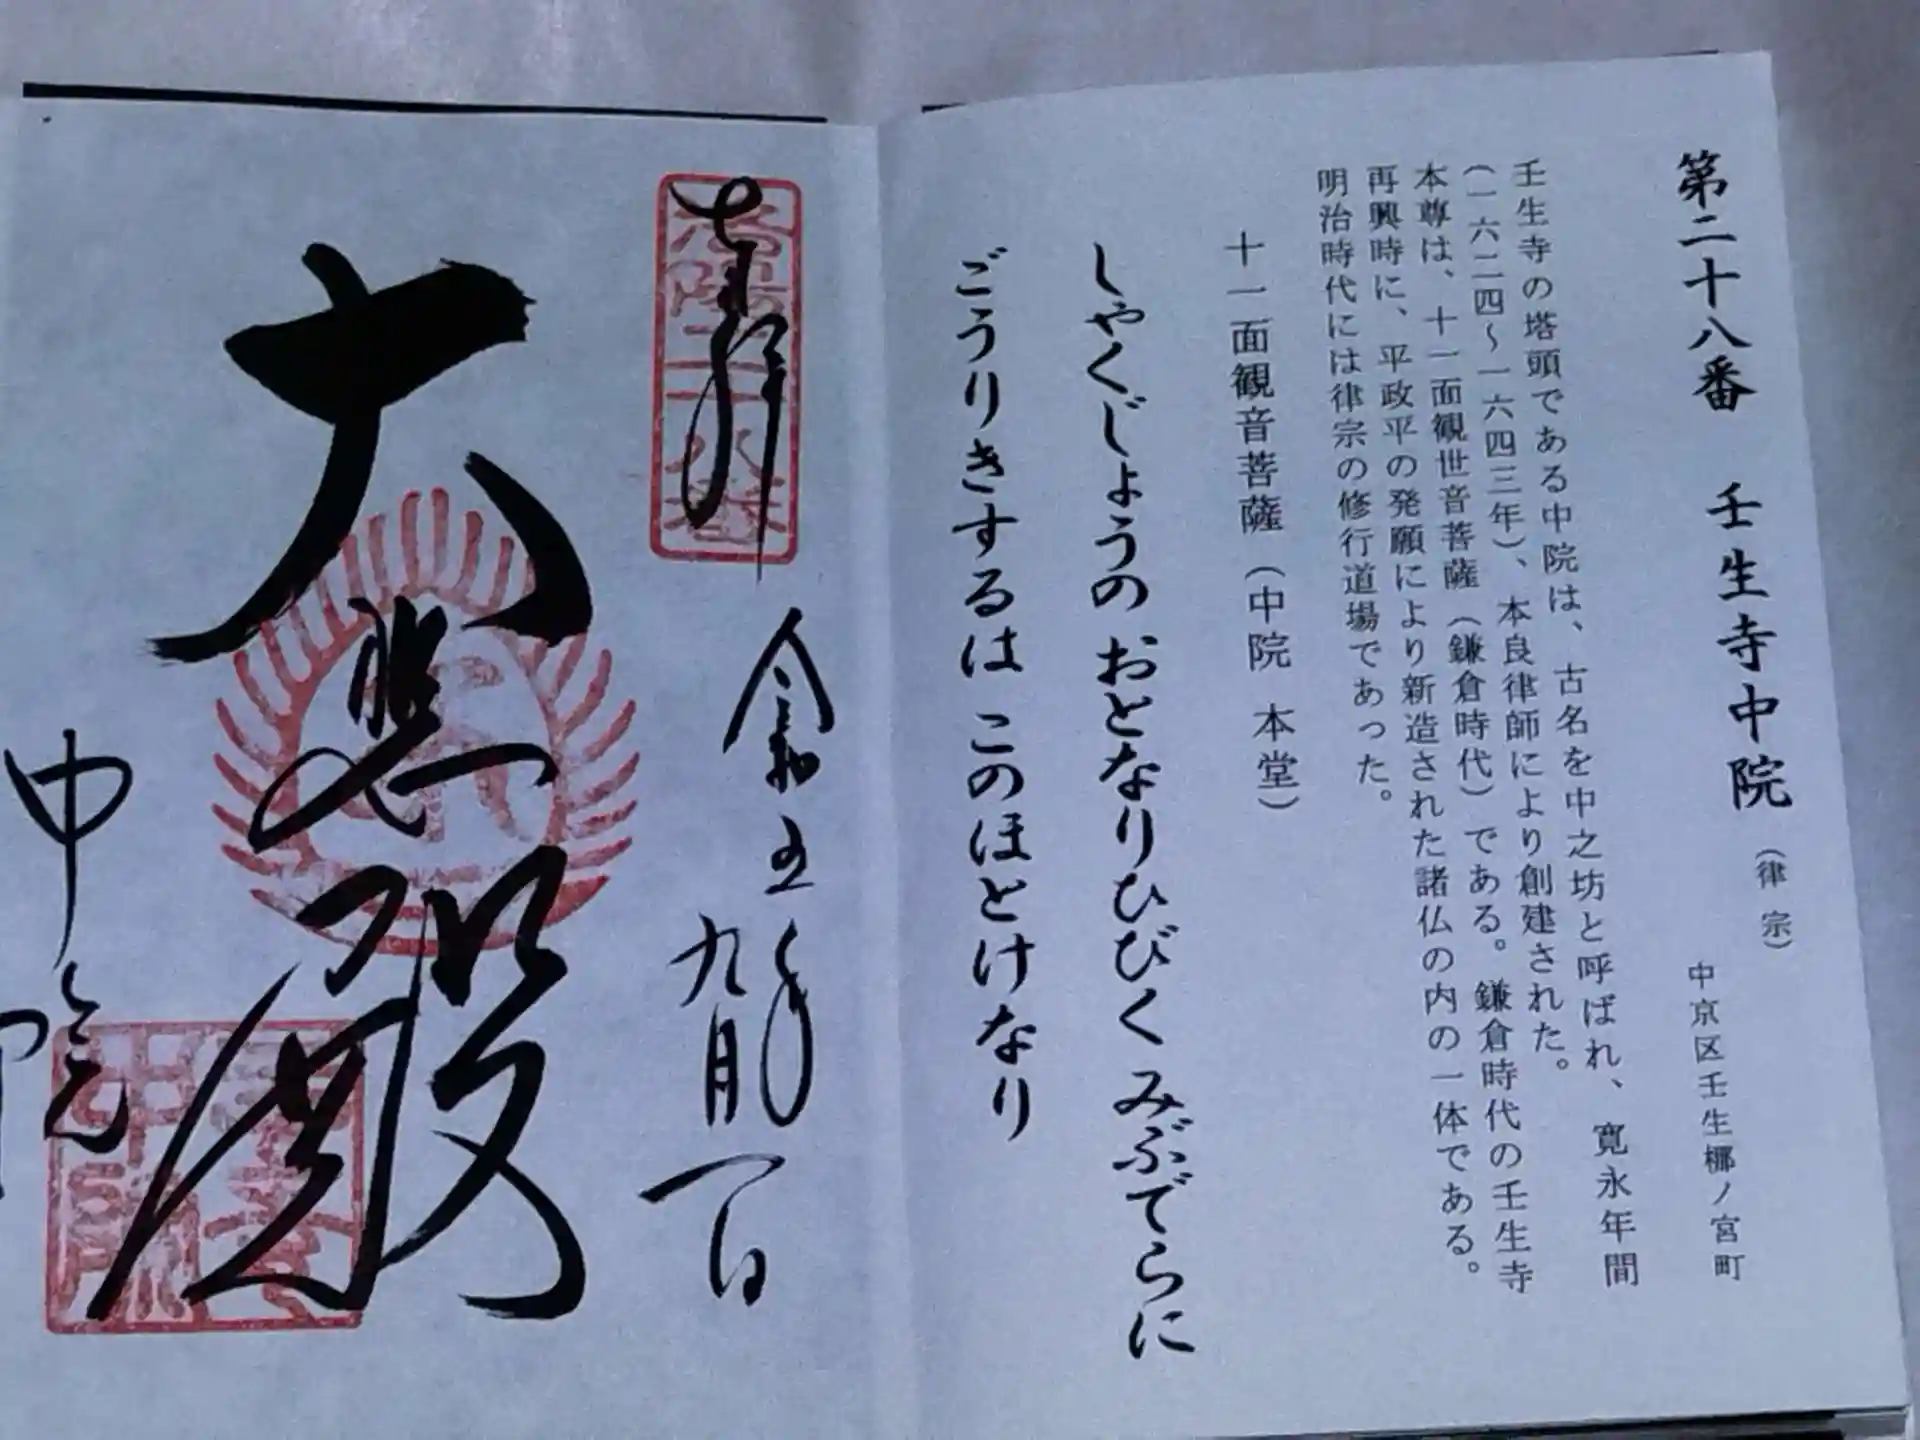 第二十八番 壬生寺中院(律宗)
中京区壬生梛ノ宮町
壬生寺の塔頭である中院は、古名を中之坊と呼ばれ、寛永年間
(一六二四〜一六四三年)、本良律師により創建された。
本尊は、十一面観世音菩薩(鎌倉時代)である。鎌倉時代の壬生寺
再興時に、平政平の発願により新造された諸仏の内の一体である。
明治時代には律宗の修行道場であった。
十一面観音菩薩(中院 本堂)
しゃくじょうの おとなりひびく みぶでらに
ごうりきするは このほとけなり
奉拝
洛陽二十八番
令和五年
九月一日
大悲殿
中院